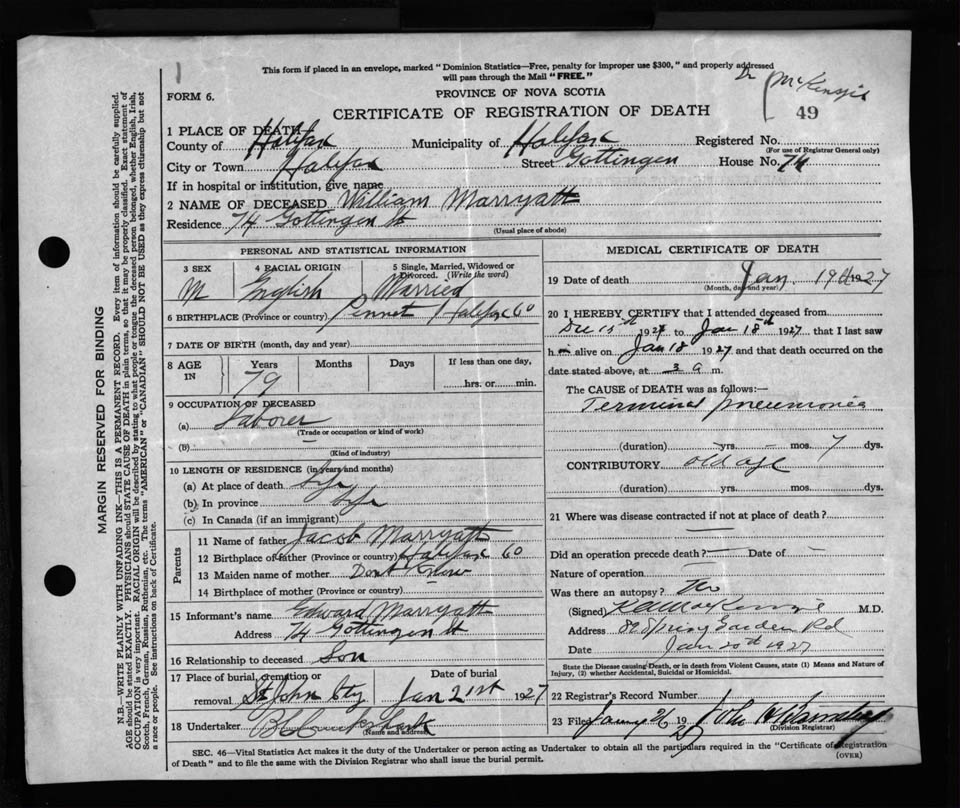 This form if placed in an envelope, marked "Dominion Statistics—Free, penalty for improper use $300," and properly addressed
will pass through the Mail "FREE."
Dr McKenzie
FORM 6.
PROVINCE OF NOVA SCOTIA
CERTIFICATE OF REGISTRATION OF DEATH
49
1 PLACE OF DEATH—
County of Halifax Municipality of Halifax Registered No.
(For use of Registrar General only)
City or Town Halifax Street Gottingen House No. 74
If in hospital or institution, give name
2 NAME OF DECEASED William Marryatt
Residence 74 Gottingen St
(Usual place of abode)
PERSONAL AND STATISTICAL INFORMATION
3 SEX 4 RACIAL ORIGIN 5 Single, Married, Widowed or Divorced. (Write the word)
M English Married
6 BIRTHPLACE (Province or country) Pennet Halifax Co
7 DATE OF BIRTH (month, day and year)
8 AGE IN Years Months Days If less than one day,
79 hrs. or min.
9 OCCUPATION OF DECEASED
(a) Laborer
(Trade or occupation or kind of work)
(B) —
(Kind of industry)
10 LENGTH OF RESIDENCE (in years and months)
(a) At place of death life
(b) In province life
(c) In Canada (if an immigrant)
Parents
11 Name of father Jacob Marryatt
12 Birthplace of father (Province or country) Halifax Co
13 Maiden name of mother Dont Know
14 Birthplace of mother (Province or country)
15 Informant's name Edward Marryatt
Address 74 Gottingen St
16 Relationship to deceased Son
17 Place of burial, cremation or removal Date of burial
St John Cty Jan 21st 1927
18 Undertaker
(Name and address)
MEDICAL CERTIFICATE OF DEATH
19 Date of death Jan. 19th 1927
(Month, day and year)
20 I HEREBY CERTIFY that I attended deceased from
Dec 15th 192 to Jan 18th 1927 that I last saw
h im alive on Jan 18 1927 and that death occurred on the
date stated above, at 3 a m.
The CAUSE of DEATH was as follows:—
Terminal pneumonia
(duration) — yrs. — mos. 7 dys.
CONTRIBUTORY old age
(duration) yrs. mos. dys.
21 Where was disease contracted if not at place of death?
—
Did an operation precede death? — Date of —
Nature of operation —
Was there an autopsy? No
(Signed) MacKenzie M.D.
Address 82 Spring Garden Rd
Date Jan 20th 1927
State the Disease causing Death, or in death from Violent Causes, state (1) Means and Nature of Injury, (2) whether Accidental, Suicidal or Homicidal.
22 Registrar's Record Number
23 Filed Jany 26 1927 John
(Division Registrar)
SEC. 46—Vital Statistics Act makes it the duty of the Undertaker or person acting as Undertaker to obtain all the particulars required in the "Certificate of Registration
of Death" and to file the same with the Division Registrar who shall issue the burial permit.
(OVER)
MARGIN RESERVED FOR BINDING
N.B.—WRITE PLAINLY WITH UNFADING INK—THIS IS A PERMANENT RECORD. Every item of information should be carefully supplied.
AGE should be stated EXACTLY. PHYSICIANS should STATE CAUSE OF DEATH in plain terms, so that it may be properly classified. Exact statement of
OCCUPATION is very important. RACIAL ORIGIN will be described by stating to what people or tongue the deceased person belonged, whether English, Irish,
Scotch, French, German, Russian, Ruthenian, etc. The terms "AMERICAN" or "CANADIAN" SHOULD NOT BE USED as they express citizenship but not
a race or people. See instructions on back of Certificate.